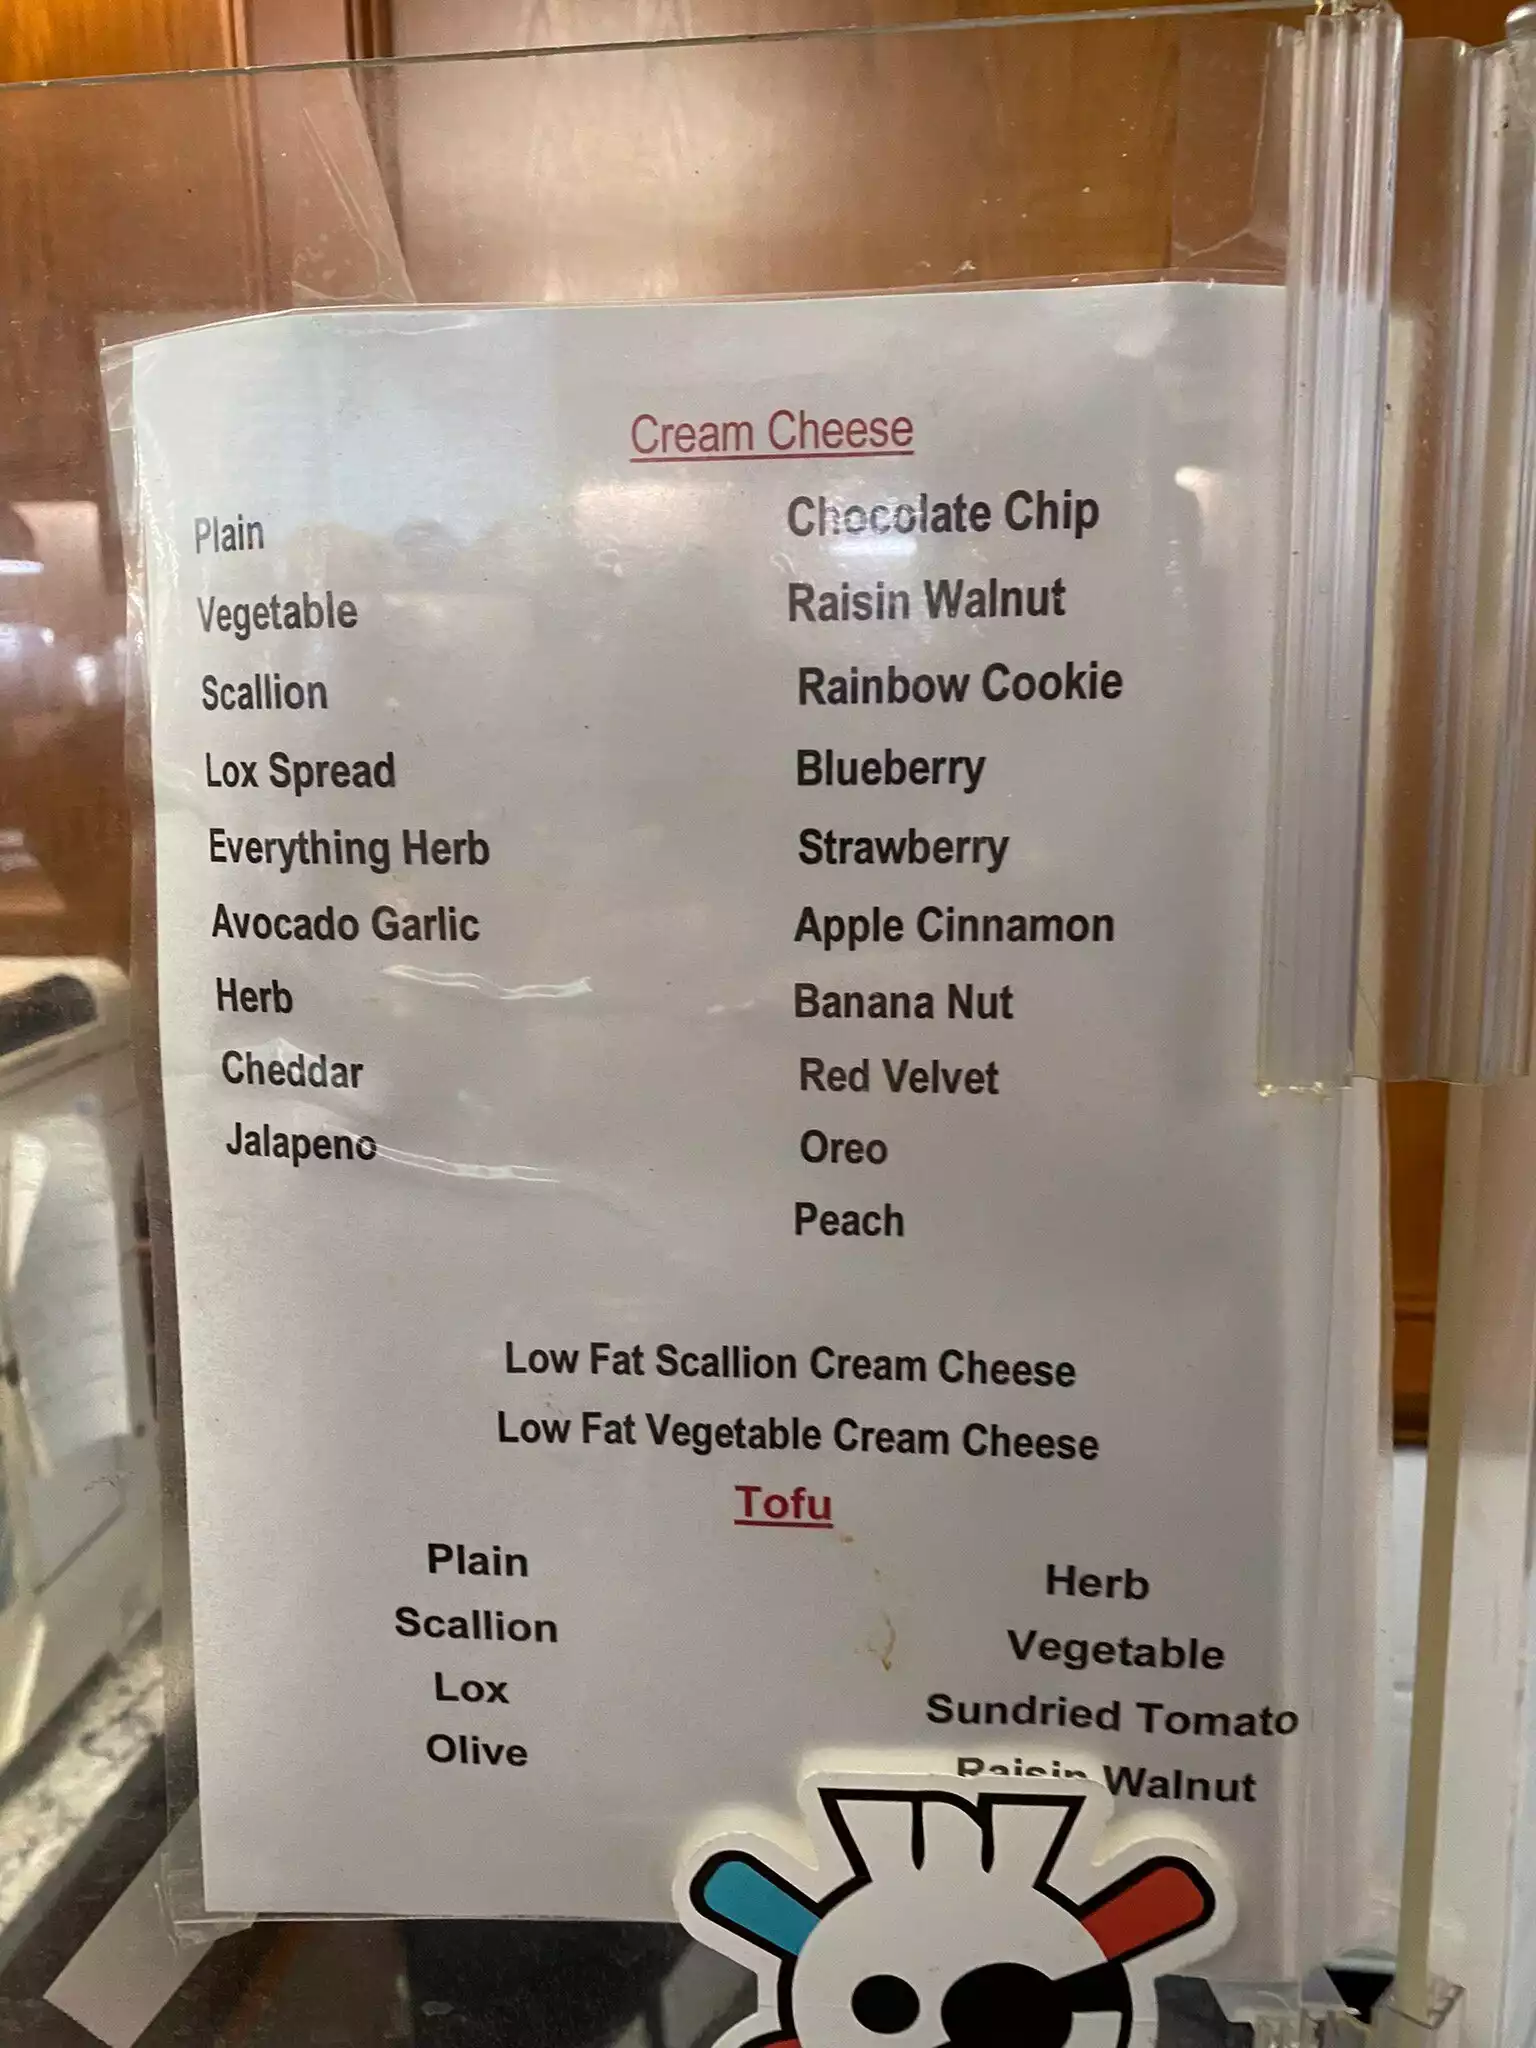 Cream Cheese
Plain
Vegetable
Scallion
Lox Spread
Everything Herb
Avocado Garlic
Herb
Cheddar
Jalapeno
Chocolate Chip
Raisin Walnut
Rainbow Cookie
Blueberry
Strawberry
Apple Cinnamon
Banana Nut
Red Velvet
Oreo
Peach
Low Fat Scallion Cream Cheese
Low Fat Vegetable Cream Cheese
Tofu
Plain
Scallion
Lox
Olive
Herb
Vegetable
Sundried Tomato
Raisin Walnut